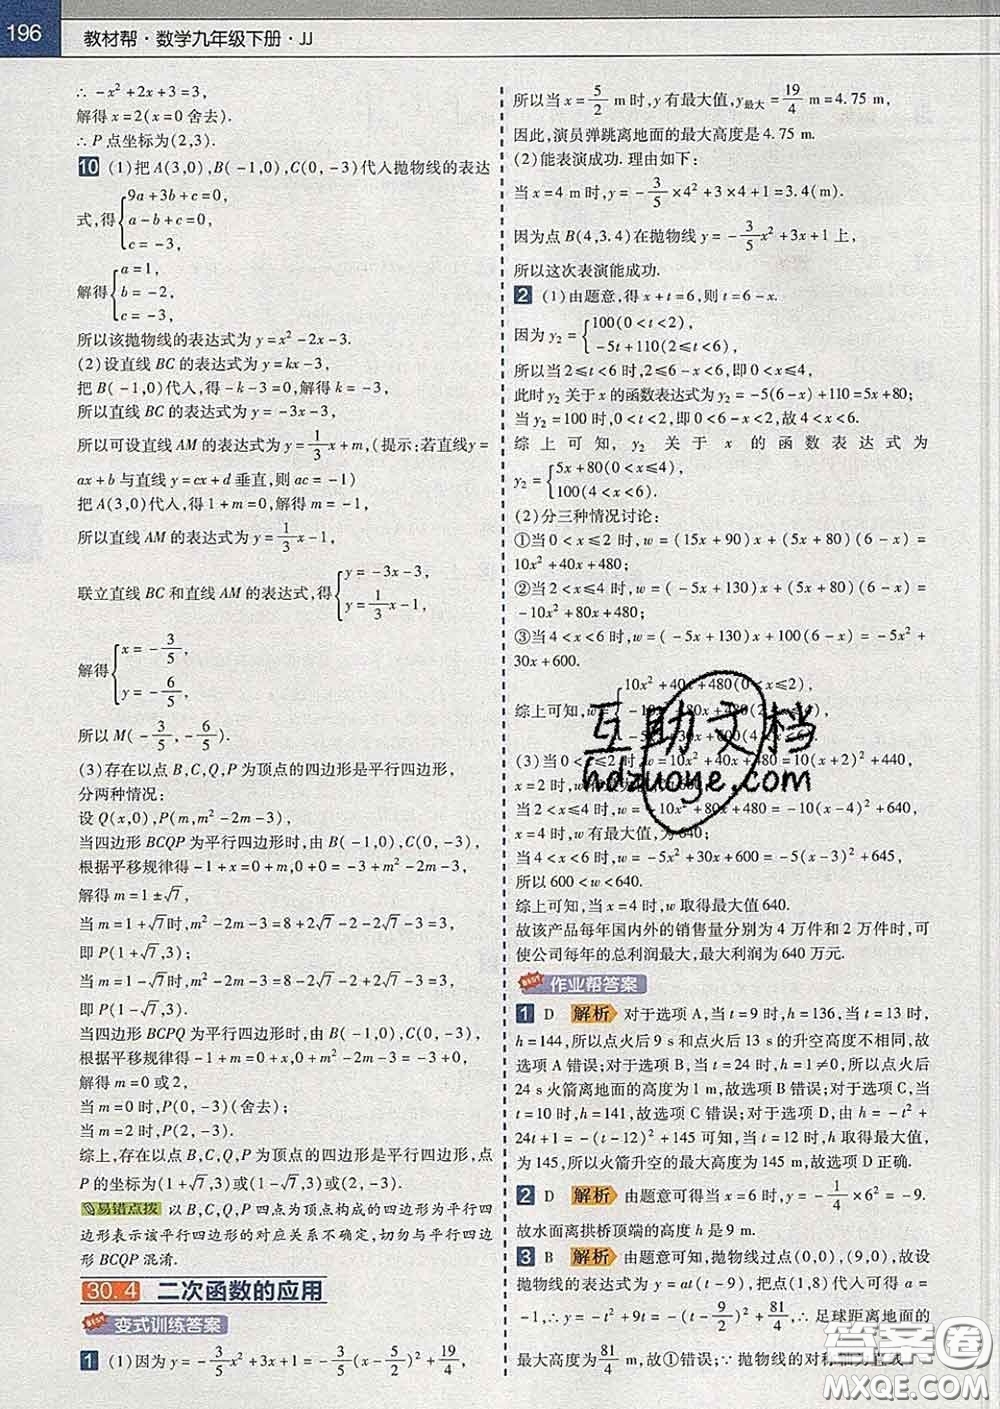 196
教材帮·数学九年级下册·JJ
∴ -x²+2x+3=3,
解得 x=2(x=0 舍去).
∴ P 点坐标为(2,3).
10 (1)把 A(3,0),B(-1,0),C(0,-3)代入抛物线的表达
式,得{9a+3b+c=0,
a-b+c=0,
c=-3,
解得{a=1,
b=-2,
c=-3,
所以该抛物线的表达式为 y=x²-2x-3.
(2)设直线 BC 的表达式为 y=kx-3,
把 B(-1,0)代入,得-k-3=0,解得 k=-3,
所以直线 BC 的表达式为 y=-3x-3,
所以可设直线 AM 的表达式为 y=1/3x+m,(提示:若直线y=
ax+b 与直线 y=cx+d 垂直,则 ac=-1)
把 A(3,0)代入,得 1+m=0,解得 m=-1,
所以直线 AM 的表达式为 y=1/3x-1,
联立直线 BC 和直线 AM 的表达式,得{y=-3x-3,
y=1/3x-1,
解得{x=-3/5,
y=-6/5,
所以 M(-3/5,-6/5).
(3)存在以点 B,C,Q,P 为顶点的四边形是平行四边形,
分两种情况:
设 Q(x,0),P(m,m²-2m-3),
当四边形 BCQP 为平行四边形时,由 B(-1,0),C(0,-3),
根据平移规律得-1+x=0+m,0+0=-3+m²-2m-3,
解得 m=1±√7,
当 m=1+√7时,m²-2m-3=8+2√7-2-2√7-3=3,
即 P(1+√7,3);
当 m=1-√7时,m²-2m-3=8-2√7-2+2√7-3=3,
即 P(1-√7,3).
当四边形 BCPQ 为平行四边形时,由 B(-1,0),C(0,-3),
根据平移规律得-1+m=0+x,0+m²-2m-3=-3+0,
解得 m=0 或 2,
当 m=0 时,P(0,-3)(舍去);
当 m=2 时,P(2,-3).
综上,存在以点 B,C,Q,P 为顶点的四边形是平行四边形,点
P 的坐标为(1+√7,3)或(1-√7,3)或(2,-3).
易错点拨 以 B,C,Q,P 四点为顶点构成的四边形为平行四
边形表示该平行四边形的对应关系不确定,切勿与平行四边
形 BCQP 混淆.
30.4 二次函数的应用
BEST 变式训练答案
1 (1)因为 y=-3/5x²+3x+1=-3/5(x-5/2)²+19/4,
所以当 x=5/2 m时,y有最大值,y最大=19/4 m=4.75 m,
因此,演员弹跳离地面的最大高度是 4.75 m.
(2)能表演成功. 理由如下:
当 x=4 m时,y=-3/5×4²+3×4+1=3.4(m).
因为点 B(4,3.4)在抛物线 y=-3/5x²+3x+1上,
所以这次表演能成功.
2 (1)由题意,得 x+t=6,则 t=6-x.
因为 y₂={100(0<t<2),
-5t+110(2≤t<6),
所以当 2≤t<6时,2≤6-x<6,即 0<x≤4,
此时 y₂ 关于 x 的函数表达式为 y₂=-5(6-x)+110=5x+80;
当 y₂=100 时,0<t<2,即 0<6-x<2,故 4<x<6.
综上可知, y₂ 关于 x 的函数表达式为
y₂={5x+80(0<x≤4),
100(4<x<6).
(2)分三种情况讨论:
①当 0<x≤2 时,w=(15x+90)x+(5x+80)(6-x)=
10x²+40x+480;
②当 2<x≤4时,w=(-5x+130)x+(5x+80)(6-x)=
-10x²+80x+480;
③当 4<x<6 时,w=(-5x+130)x+100(6-x)=-5x²+
30x+600.
综上可知,w={10x²+40x+480(0<x≤2),
-10x²+80x+480(2<x≤4),
-5x²+30x+600(4<x<6).
(3)当 0<x≤2时,w=10x²+40x+480=10(x+2)²+440,
x=2时,w有最大值,为600;
当 2<x≤4 时,w=-10x²+80x+480=-10(x-4)²+640,
x=4时,w有最大值,为640;
当 4<x<6 时,w=-5x²+30x+600=-5(x-3)²+645,
所以 600<w<640.
综上可知,当 x=4 时,w取得最大值 640.
故该产品每年国内外的销售量分别为 4 万件和 2 万件时,可
使公司每年的总利润最大,最大利润为 640 万元.
BEST 作业帮答案
1 D 解析 对于选项 A,当 t=9 时,h=136,当 t=13 时,
h=144,所以点火后 9 s 和点火后 13 s 的升空高度不相同,故
选项 A 错误;对于选项 B,当 t=24 时,h=1≠0,所以点火后
24 s 火箭离地面的高度为 1 m,故选项 B 错误;对于选项 C,当
t=10 时,h=141,故选项 C 错误;对于选项 D,由 h=-t²+
24t+1=-(t-12)²+145 可知,当 t=12 时,h 取得最大值,
为 145,所以火箭升空的最大高度为 145 m,故选项 D 正确.
2 D 解析 由题意可得当 x=6 时,y=-1/4×6²=-9.
故水面离拱桥顶端的高度 h 是 9 m.
3 B 解析 由题意可知,抛物线过点(0,0),(9,0),故设
抛物线的表达式为 y=at(t-9),把点(1,8)代入可得 a=
-1,∴ y=-t²+9t=-(t-9/2)²+81/4,∴ 足球距离地面的
最大高度为 81/4 m,故①错误;∵ 抛物线的对称轴为直线
互助文档
hdzuoye.com
答案圈
MXQE.COM